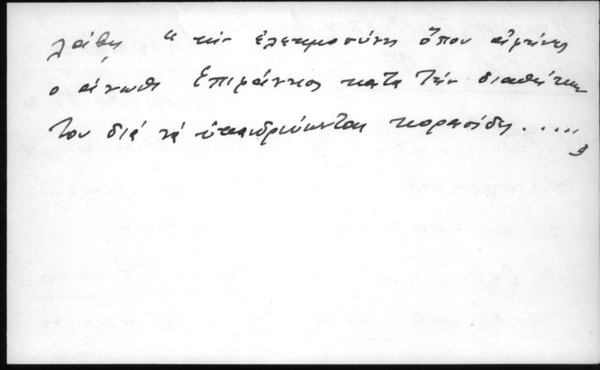 λάβη " τὴν ἐλεημοσύνην ὅπου ἀφίνει
ὁ ἄνωθι Ἐπιφάνιος κατὰ τὴν διαθήκην
του διὰ νὰ ὑπανδρεύωνται κοράσιδες .....,